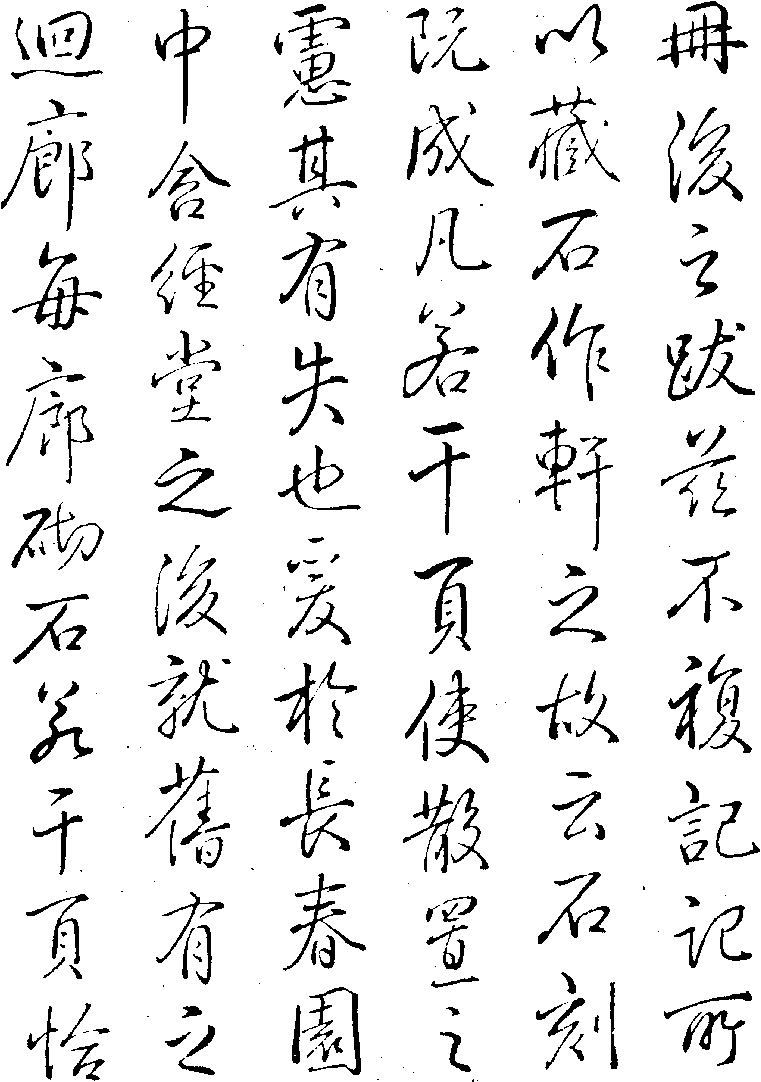 冊後之跋茲不複記記所
以藏石作軒之故云石刻
既成凡若干頁使散置之
慮其有失也爰於長春園
中含經堂之後就舊有之
迴廊每廊砌石若干頁恰